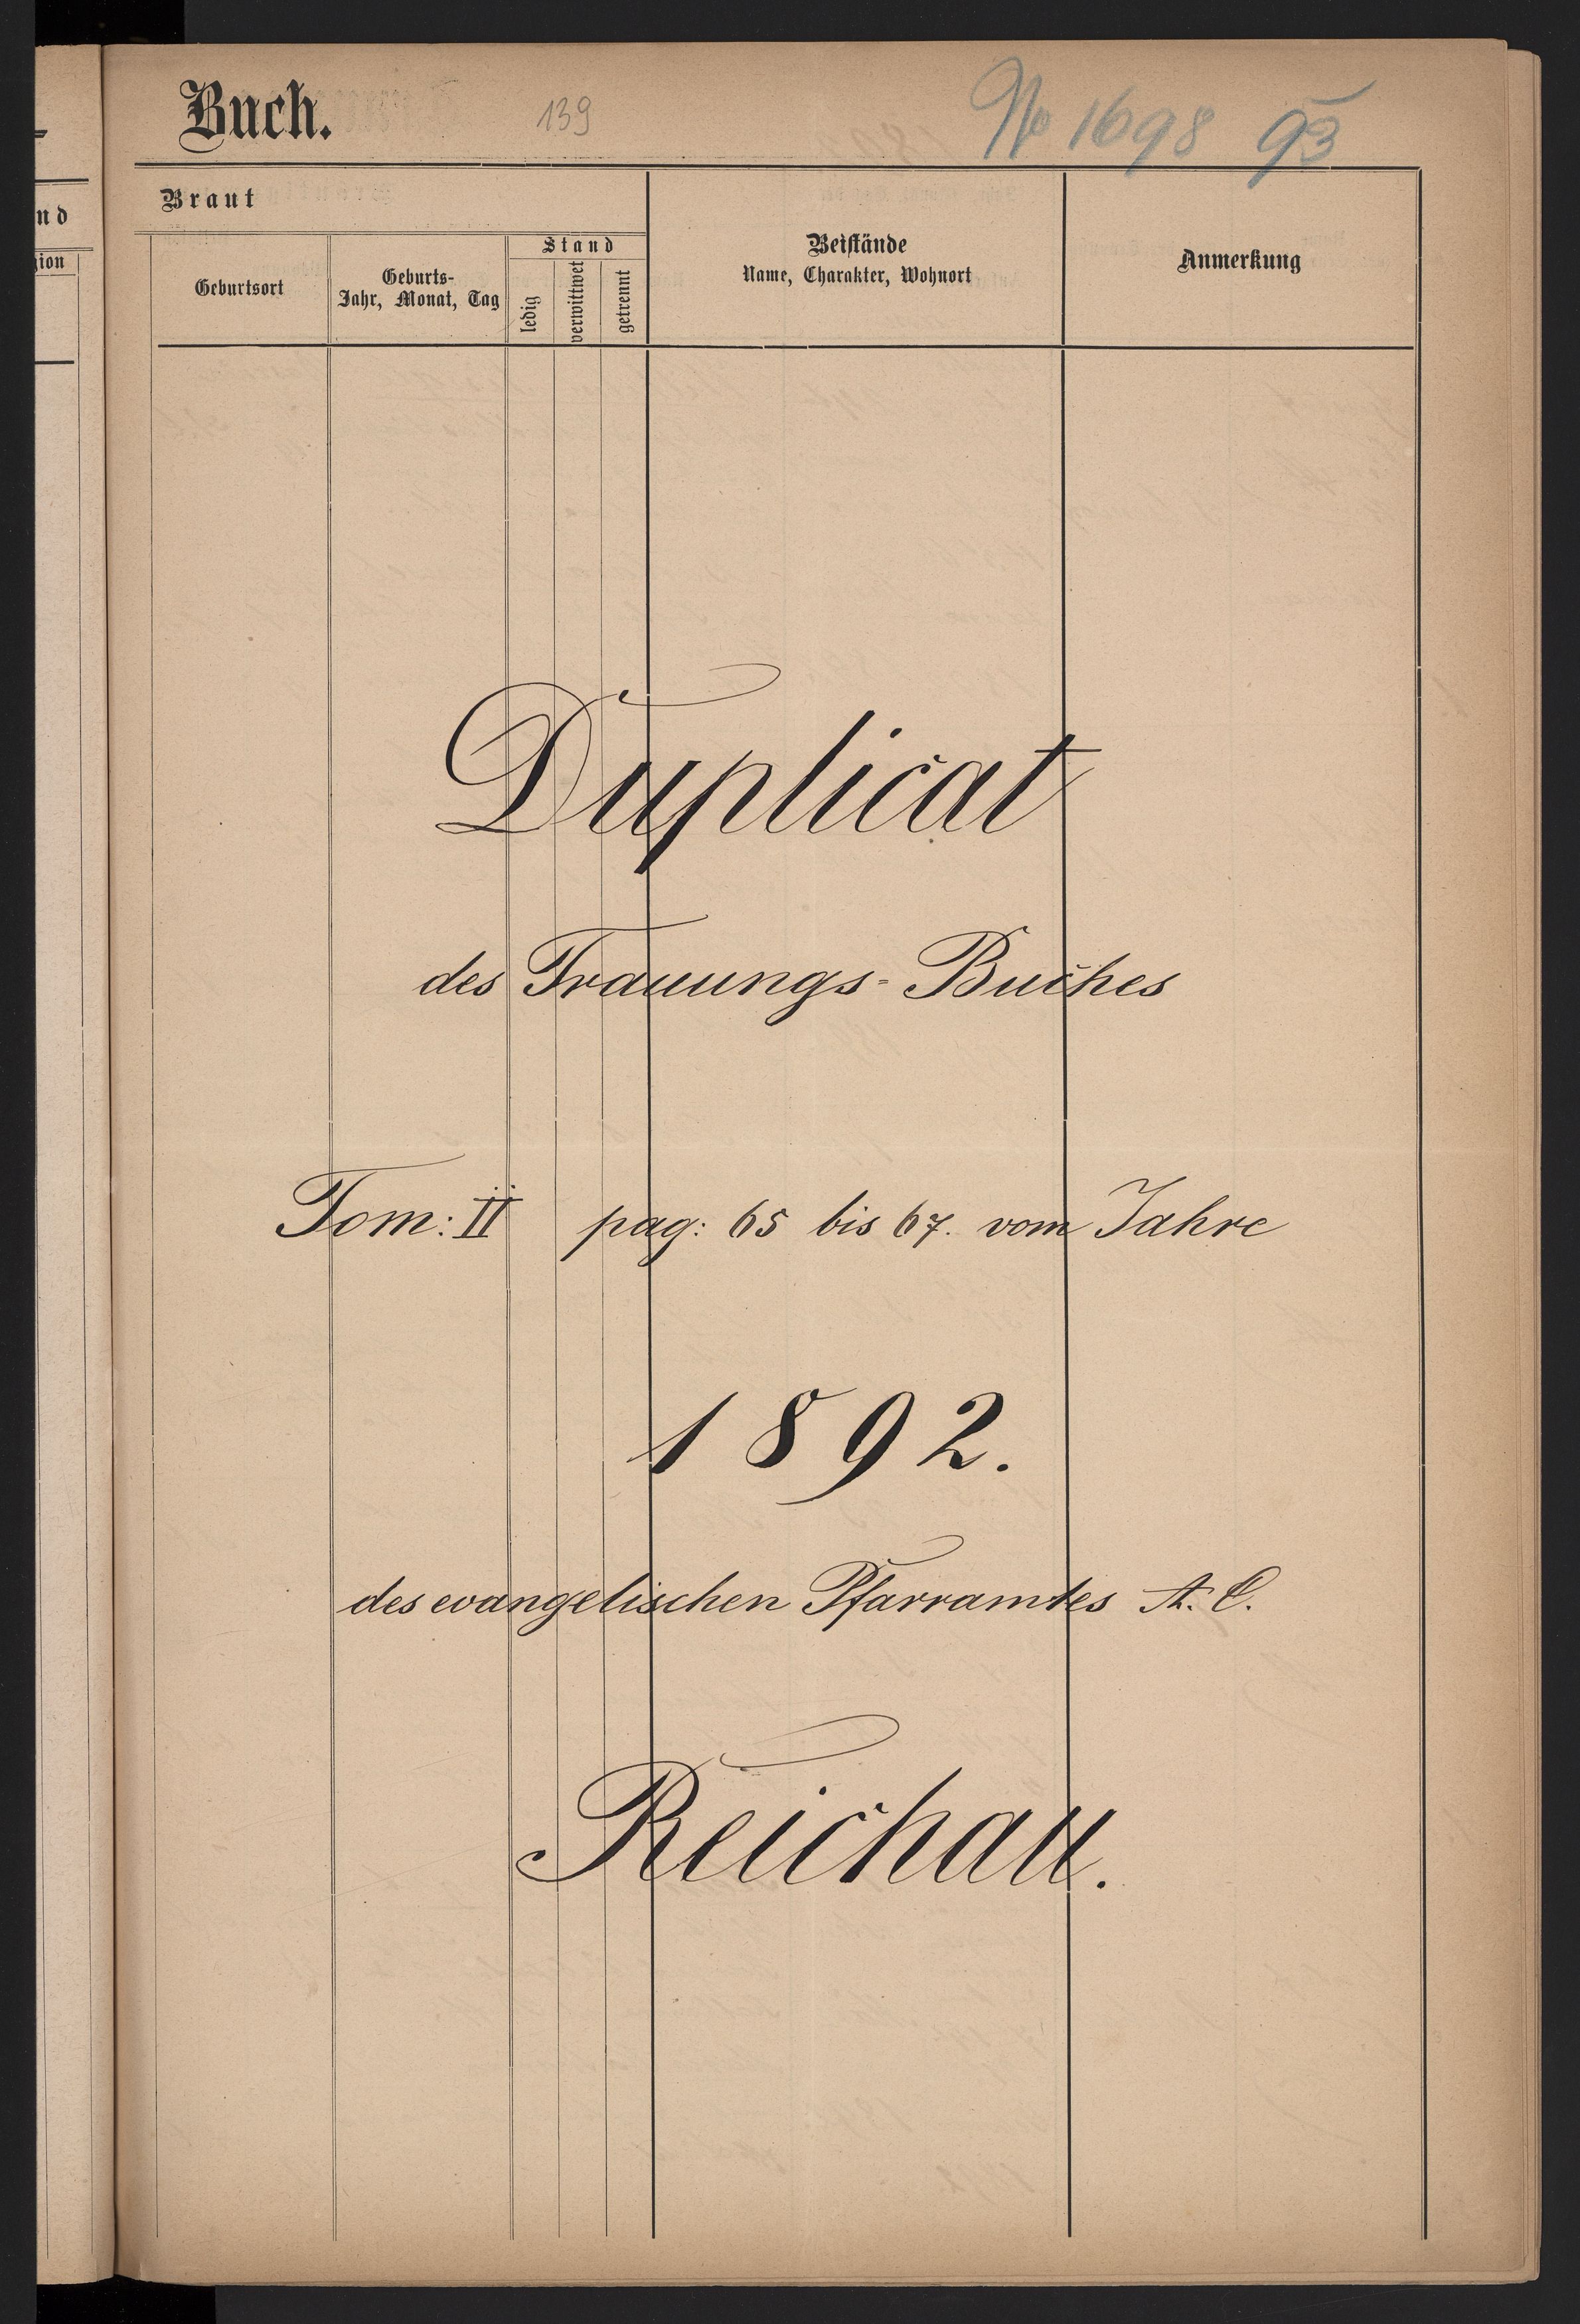 Buch.
139
No 1698 93
nd
Braut
gion
Geburtsort
Geburts-
Jahr, Monat, Tag
Stand
ledig
verwittwet
getrennt
Beistände
Name, Charakter, Wohnort
Anmerkung
Duplicat
des Trauungs-Buches
Tom: II pag: 65 bis 67. vom Jahre
1892.
des evangelischen Pfarramtes A. C.
Reichau.